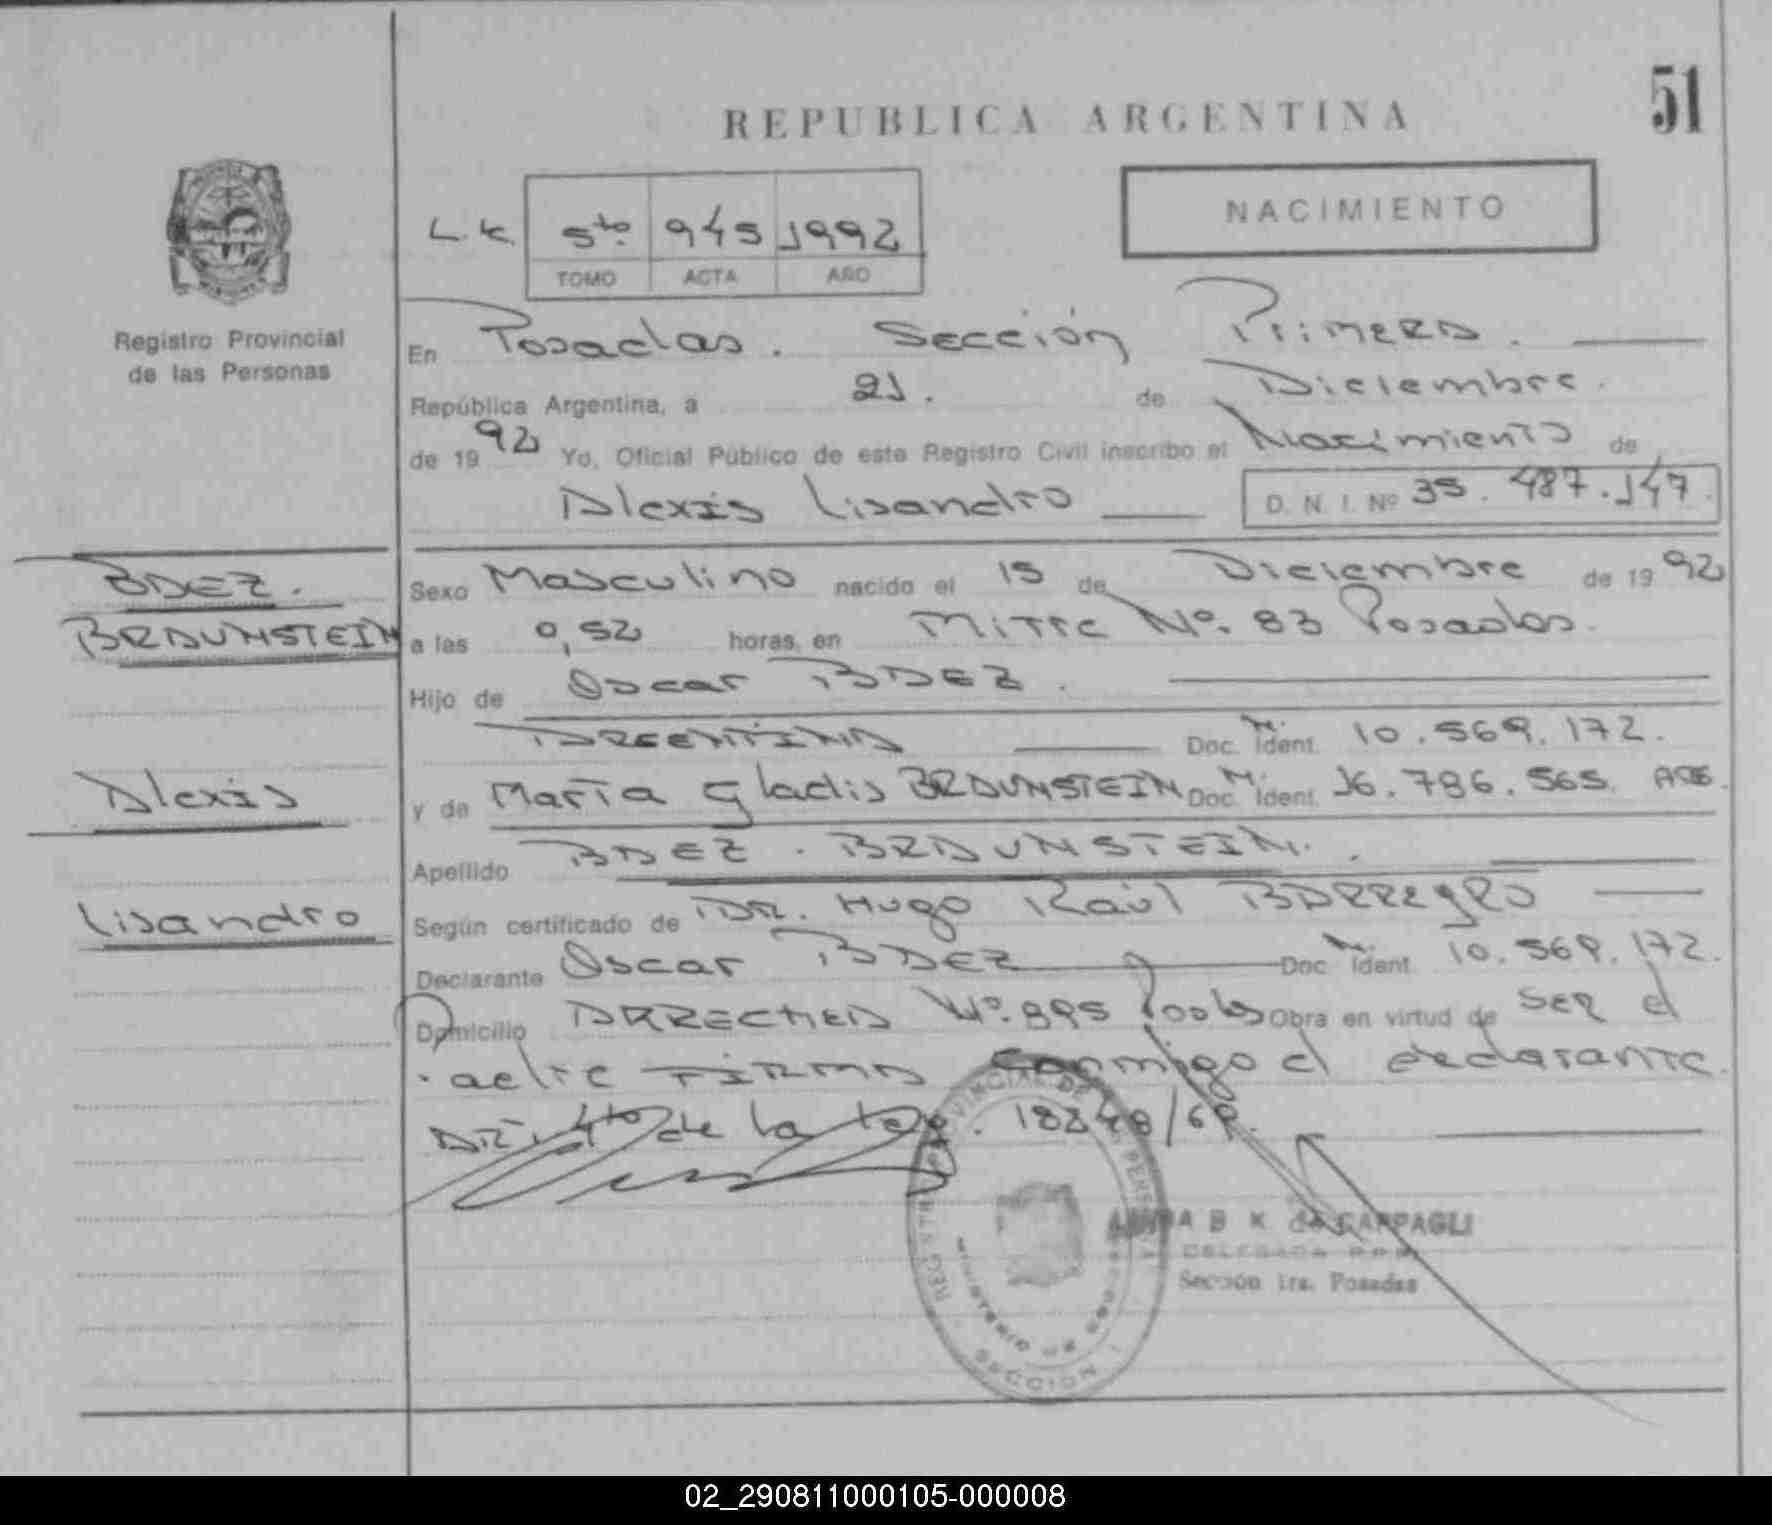 51
REPUBLICA ARGENTINA
NACIMIENTO
L.K. 5to. 945 1992
TOMO ACTA AÑO
Registro Provincial
de las Personas
En Posadas. Sección Primera.
República Argentina, a 21. de Diciembre.
de 1992 Yo, Oficial Público de este Registro Civil inscribo el Nacimiento de
Alexis Lisandro D. N. I. Nº 35.487.147
BAEZ.
BRAUNSTEIN
Alexis
Lisandro
Sexo Masculino nacido el 15 de Diciembre de 1992
a las 0,52 horas, en Mitre Nº. 83 Posadas.
Hijo de Oscar BAEZ.
ARGENTINA Doc. Ident. 10.569.172.
y de María Gladis BRAUNSTEIN Doc. Ident. 16.786.565. ARG.
Apellido BAEZ . BRAUNSTEIN.
Según certificado de DR. Hugo Raúl BARREYRO
Declarante Oscar BAEZ Doc. Ident. 10.569.172.
Domicilio ARRECHEA Nº. 895 Obra en virtud de SER el
FIRMA conmigo el declarante.
ART. 4to de la Ley. 18248/69.
B K de CAPPAGLI
DELEGADA R.P.P.
Sección 1ra. Posadas
SECCION 1
02_290811000105-000008